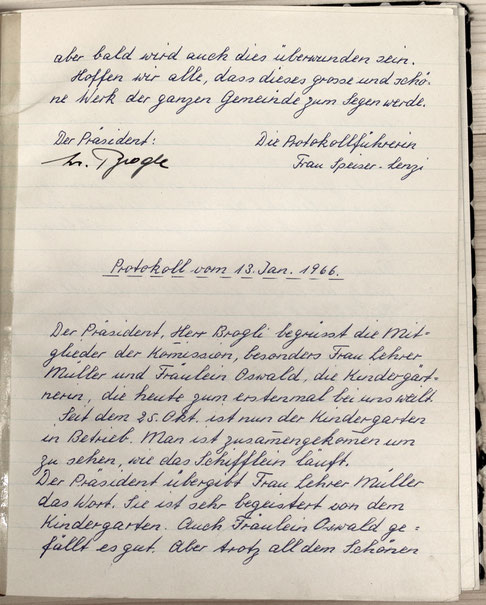 aber bald wird auch dies überwunden sein.
Hoffen wir alle, dass dieses grosse und schö-
ne Werk der ganzen Gemeinde zum Segen werde.
Der Präsident: Die Protokollführerin
Brogle Frau Speiser-Senzi
Protokoll vom 13. Jan. 1966.
Der Präsident, Herr Brogli begrüsst die Mit=
glieder der Komission, besonders Frau Lehrer
Müller und Fräulein Oswald, die Kindergärt-
nerin, die heute zum erstenmal bei uns weilt.
Seit dem 25. Okt. ist nun der Kindergarten
in Betrieb. Man ist zusamengekomen um
zu sehen, wie das Schifflein läuft.
Der Präsident übergibt Frau Lehrer Müller
das Wort. Sie ist sehr begeistert von dem
Kindergarten. Auch Fräulein Oswald ge=
fällt es gut. Aber trotz all dem Schönen